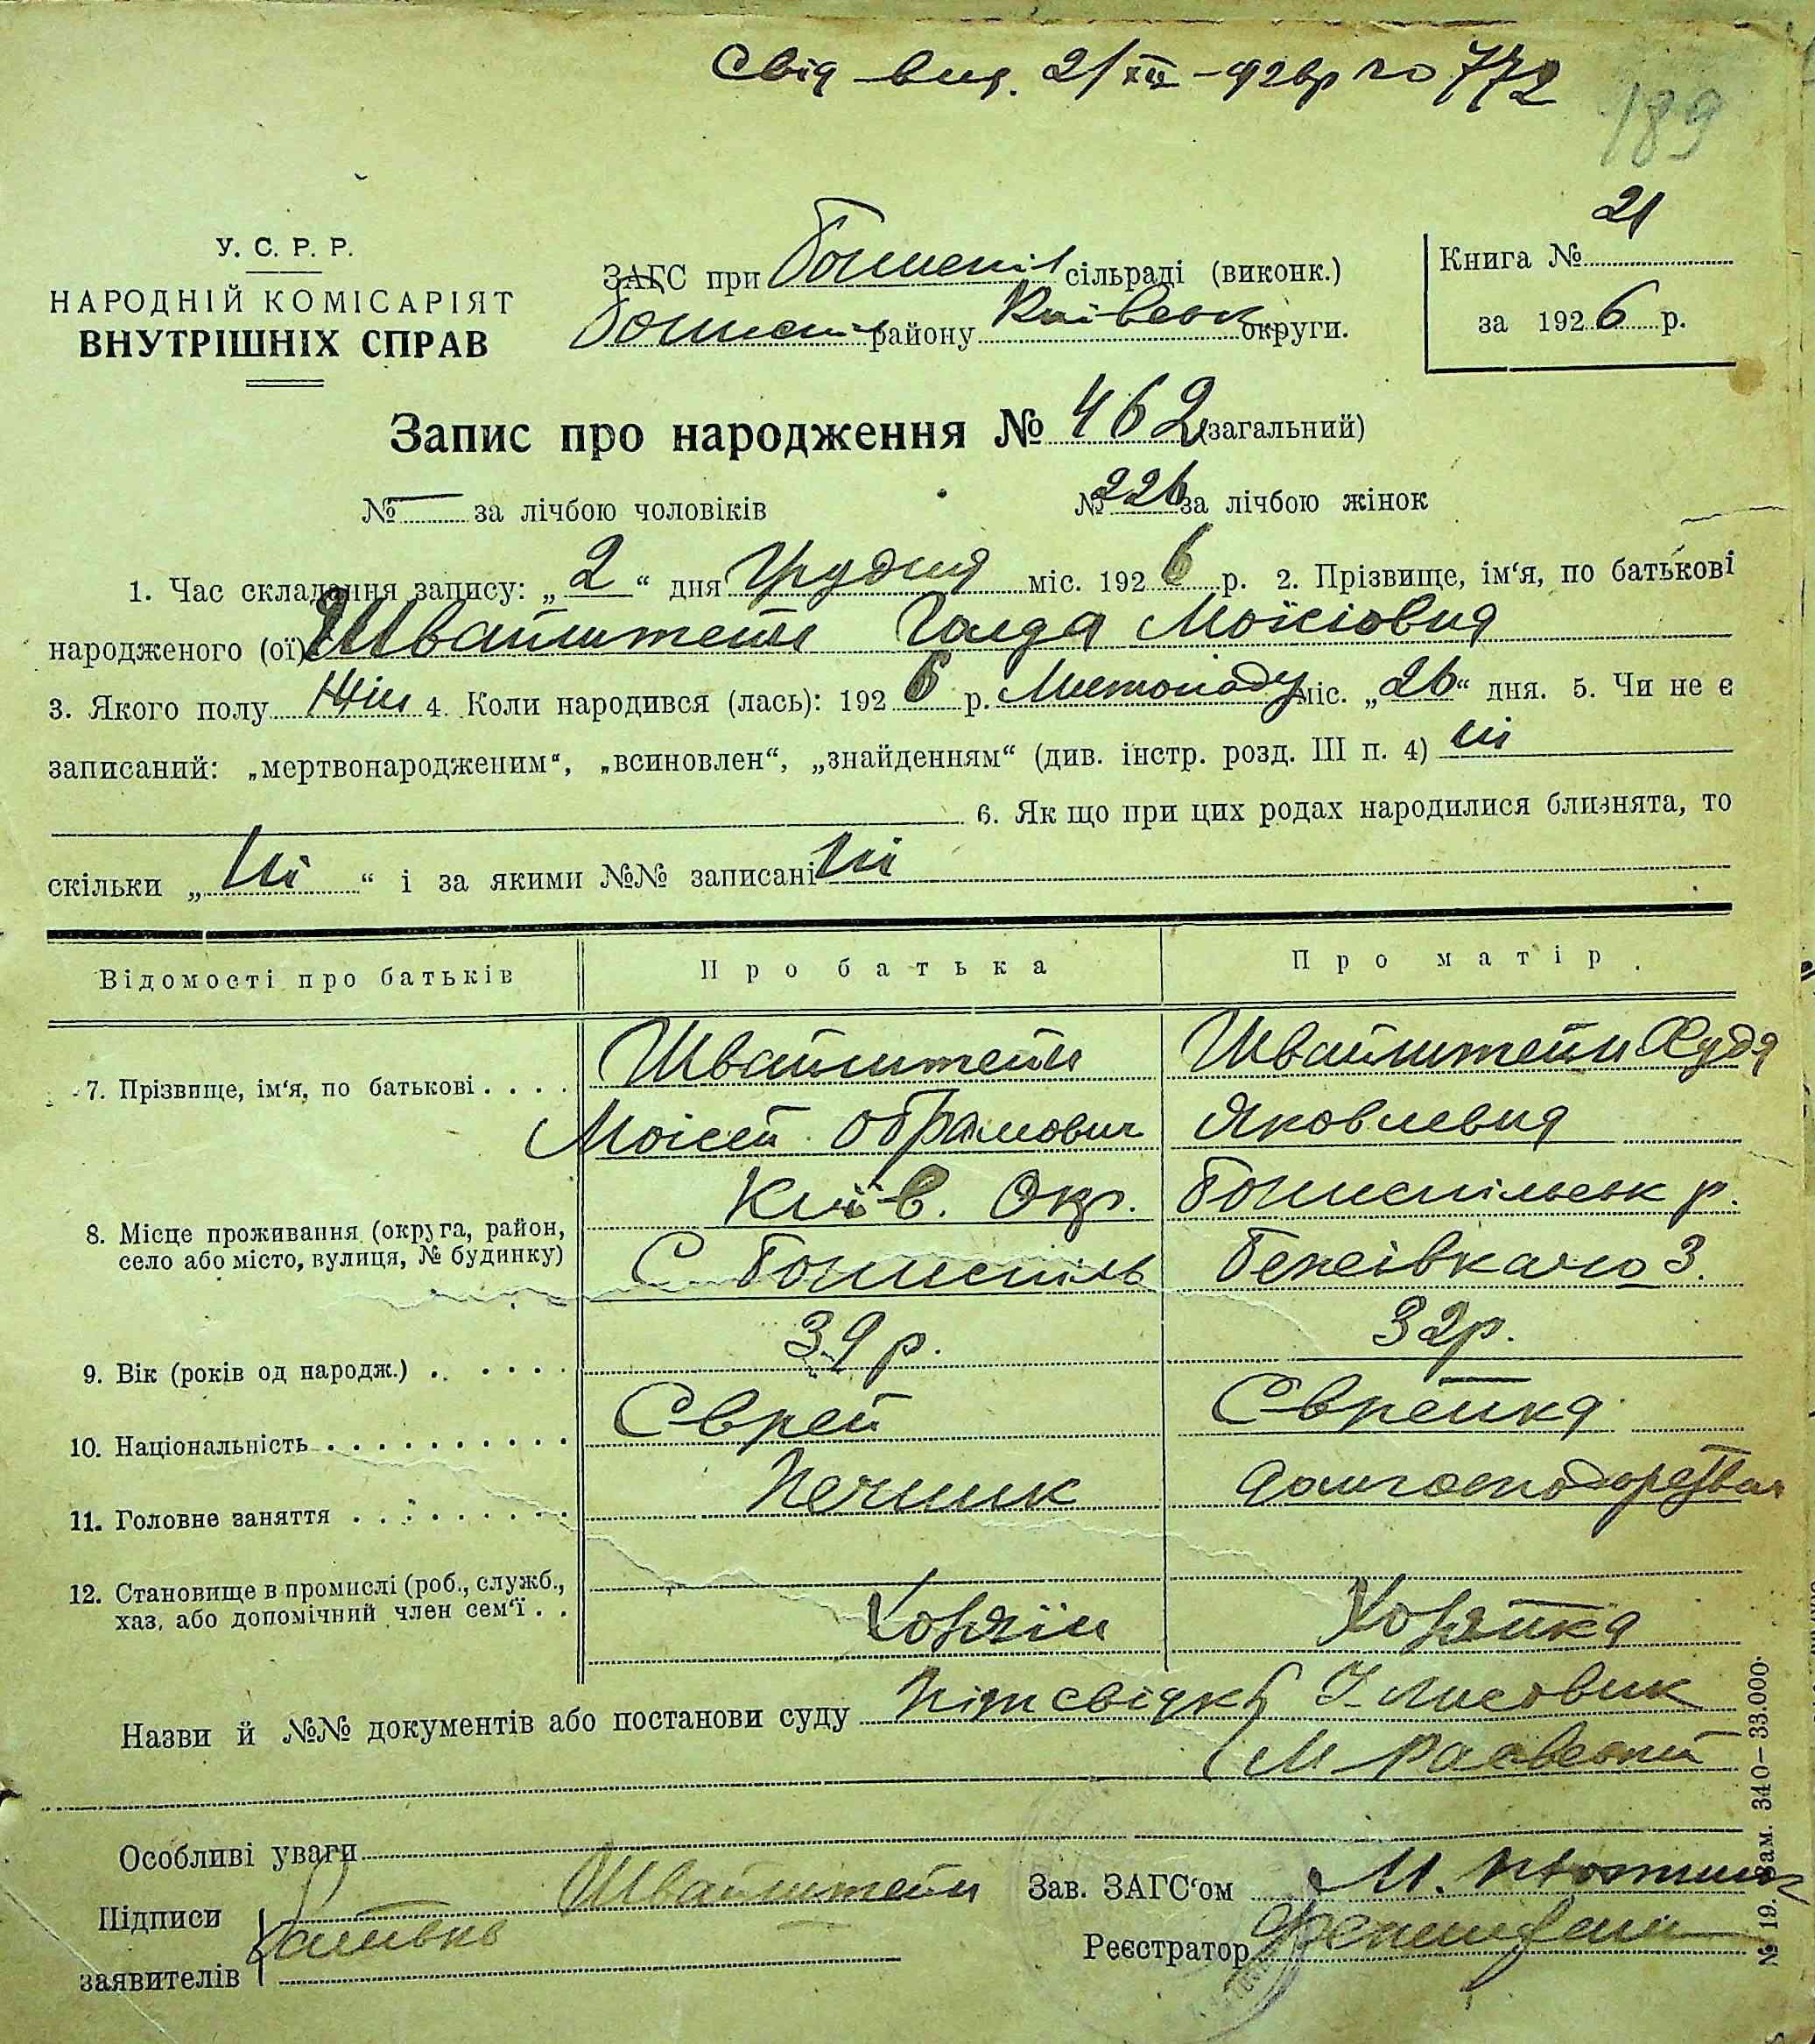 Свід вид. 2/XII-926р № 772
189
У. С. Р. Р.
НАРОДНІЙ КОМІСАРІЯТ
ВНУТРІШНІХ СПРАВ
ЗАГС при Боришпіл сільраді (виконк.)
Боришпіл району Київськ округи.
Книга № 21
за 1926 р.
Запис про народження № 462 (загальний)
№ — за лічбою чоловіків № 226 за лічбою жінок
1. Час складання запису: „2“ дня Грудня міс. 1926 р. 2. Прізвище, ім‘я, по батькові
народженого (ої) Швайштейн Голда Мойсіовна
3. Якого полу Жін 4. Коли народився (лась): 1926 р. Листопаду міс. „26“ дня. 5. Чи не є
записаний: „мертвонародженим“, „всиновлен“, „знайденням“ (див. інстр. розд. III п. 4) ні
6. Як що при цих родах народилися близнята, то
скільки „ні“ і за якими №№ записані ні
Відомості про батьків Про батька Про матір
7. Прізвище, ім‘я, по батькові . . . . Швайштейн Швайштейн Худя
Моісей Обрамович Яковлевна
8. Місце проживання (округа, район, село або місто, вулиця, № будинку) Київ. Окр. Боришпільськ р.
С Боришпіль 3.
9. Вік (років од народж.) . . . . . . 39 р. 32 р.
10. Національність . . . . . . . . . . Єврей Єврейка
11. Головне заняття . . . . . . . . . Печник
12. Становище в промислі (роб., служб., хаз. або допомічний член сем‘ї . . Хозяїн Хозяйка
Назви й №№ документів або постанови суду свідки Лисовик
М
Особливі уваги
Підписи Швайштейн Зав. ЗАГС‘ом М.
заявителів батько Реєстратор
№ 19. Зам. 340–33.000.